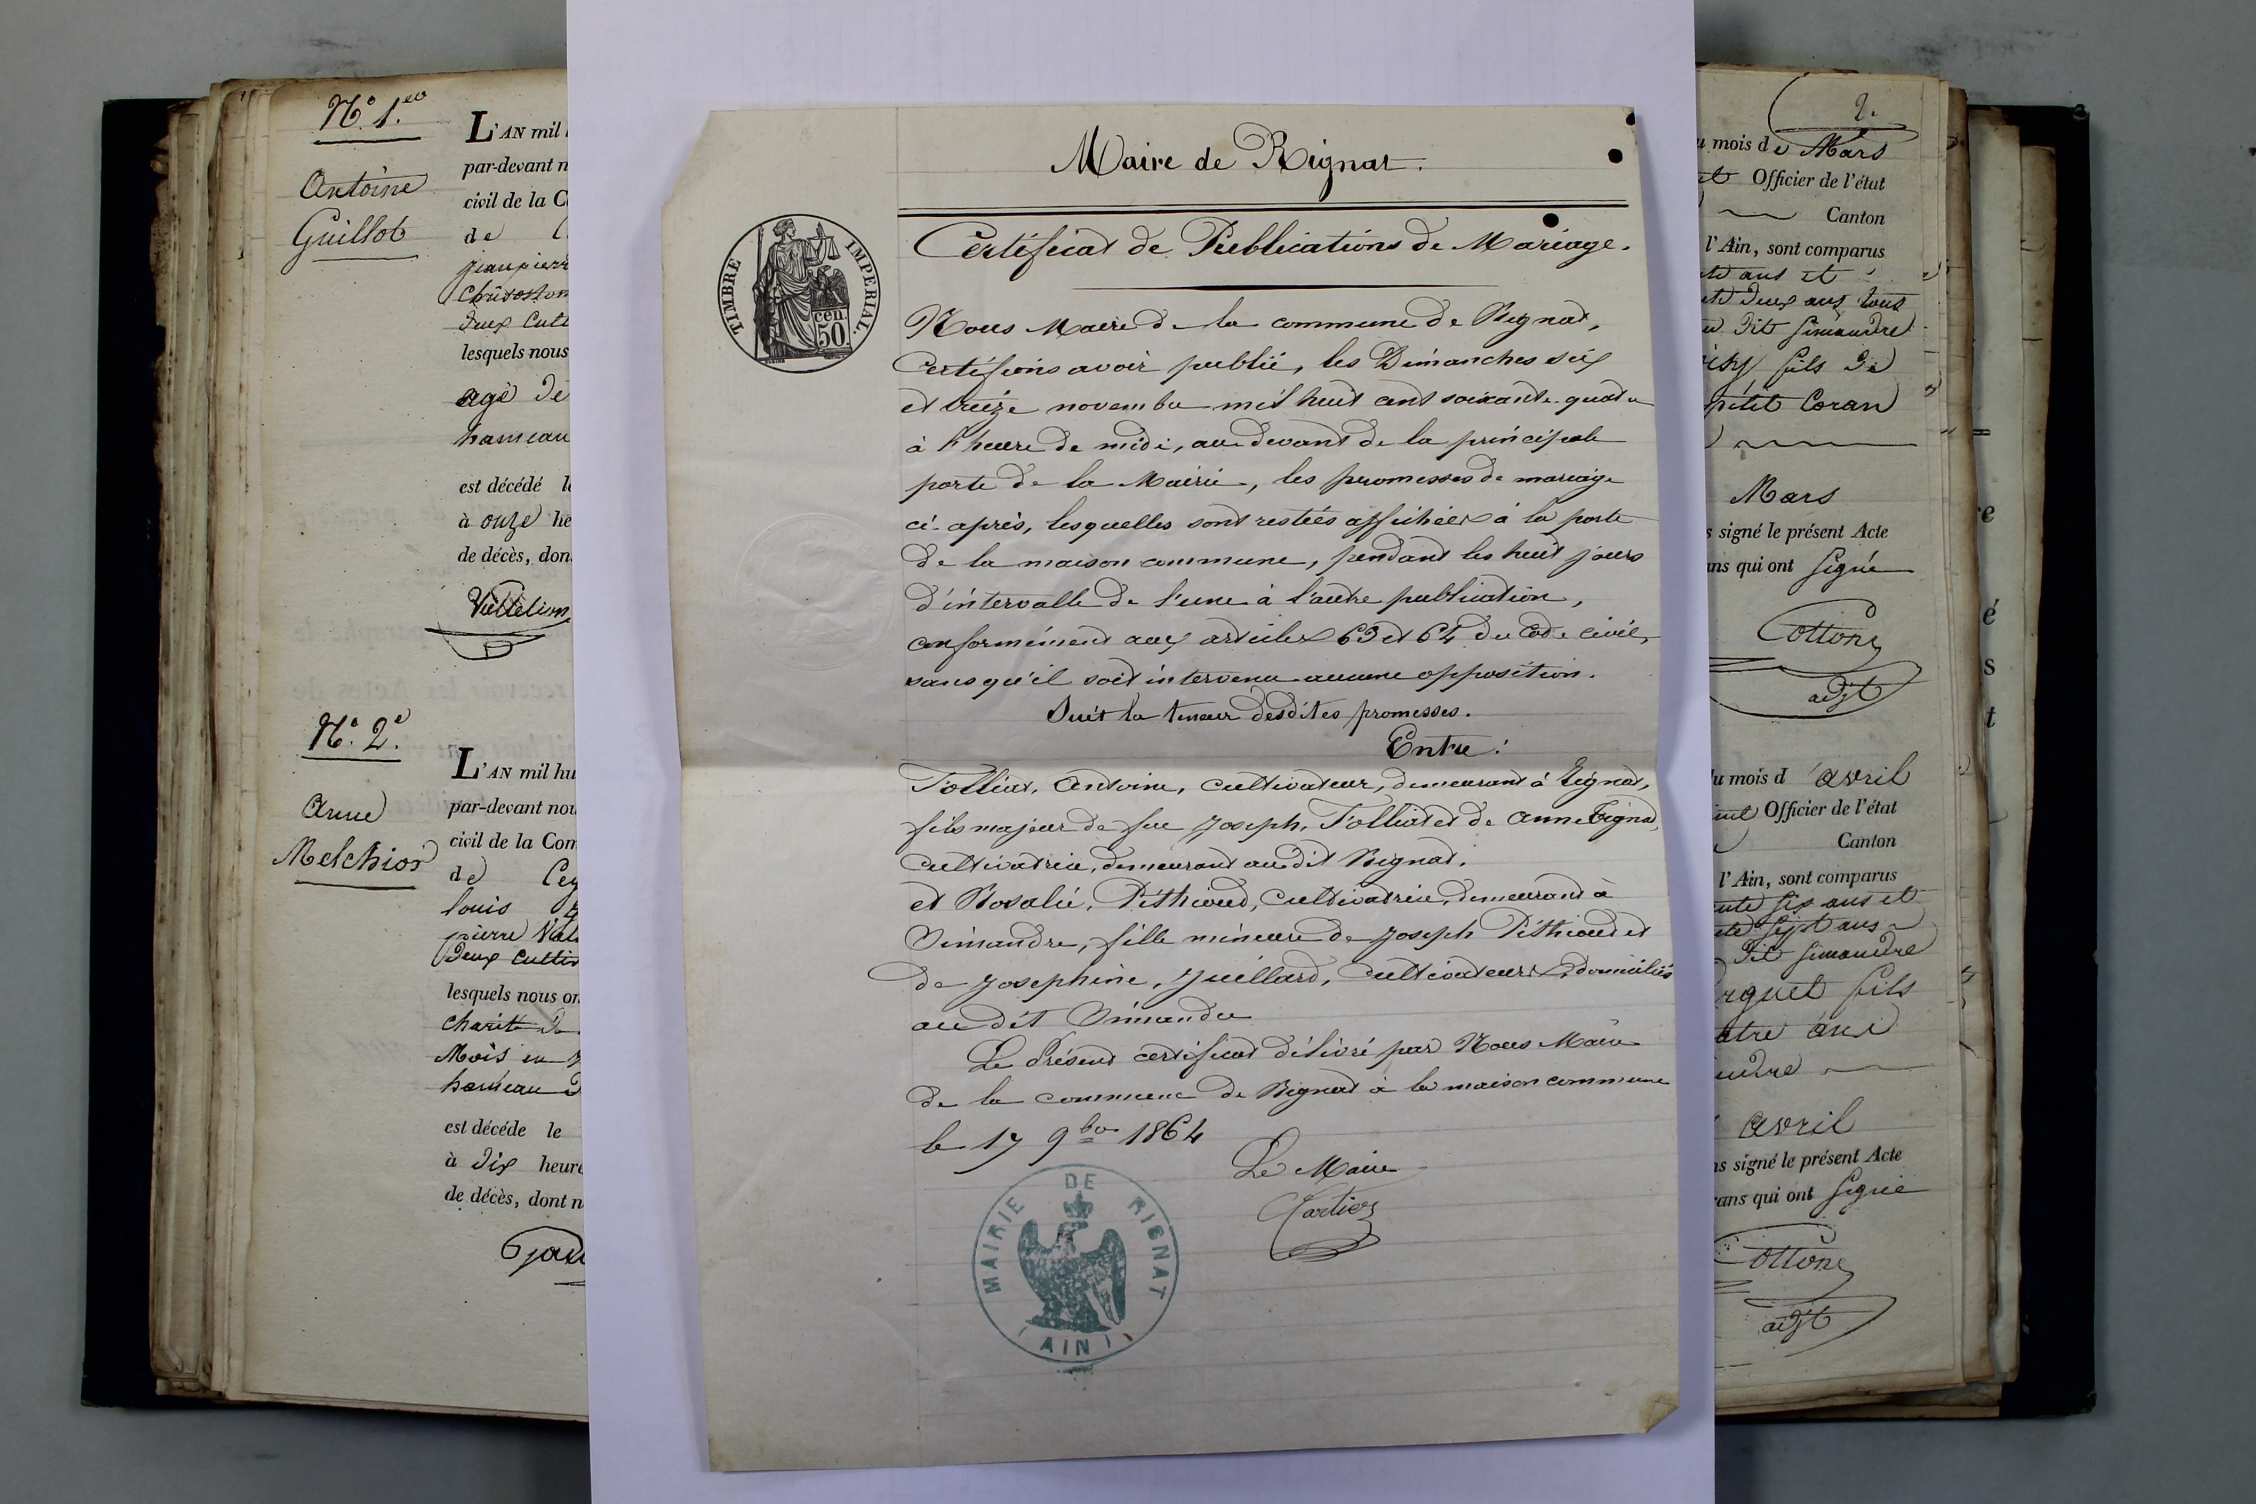 N.º 1.er
Antoine
Guillot
L'AN mil
par-devant n
civil de la C
de
jean pierr
Chrisoston
deux Cult
lesquels nous
agé de
hameau
est décédé l
à onze he
de décès, don
N.º 2.e
Anne
Melchior
L'AN mil hu
par-devant nou
civil de la Com
de Cey
louis
pierre Viel
deux cultiv
lesquels nous on
charité de
Mois en
hameau d
est décéde le
à dix heure
de décès, dont n
Maire de Rignat.
Certificat de Publications de Mariage.
TIMBRE IMPERIAL.
cen. 50
Nous Maire de la commune de Rignat,
Certifions avoir publié, les Dimanches six
et treize novembre mil huit cent soixante-quatre
à l'heure de midi, au devant de la principale
porte de la Mairie, les promesses de mariage
ci-après, lesquelles sont restées affichées à la porte
de la maison commune, pendant les huit jours
d'intervalle de l'une à l'autre publication,
conformément aux articles 63 et 64 du Code civil,
sans qu'il soit intervenu aucune opposition.
Suit la teneur desdites promesses.
Entre:
Folliat, Antoine, cultivateur, demeurant à Rignat,
fils majeur de feu Joseph, Folliat et de Anne Tignat,
cultivatrice, demeurant audit Rignat.
et Rosalie, Péthioud, cultivatrice, demeurant à
Simandre, fille mineure de Joseph Péthioud et
de Josephine, Juillard, cultivateurs, domiciliés
au dit Simandre
Le Présent certificat délivré par Nous Maire
de la commune de Rignat à la maison commune
le 17 9bre 1864
Le Maire
Cartier
MAIRIE DE RIGNAT
(AIN)
2.
u mois de Mars
Officier de l'état
Canton
l'Ain, sont comparus
ans et
deux ans tous
dit Simandre
fils de
pétit Coran
Mars
s signé le présent Acte
ans qui ont signé
Cottons
adjt
du mois d avril
Officier de l'état
Canton
l'Ain, sont comparus
six ans et
sept ans
dit Simandre
rguet fils
atre ans
andre
avril
ns signé le présent Acte
rans qui ont signé
Cottons
adjt
re
é
s
t